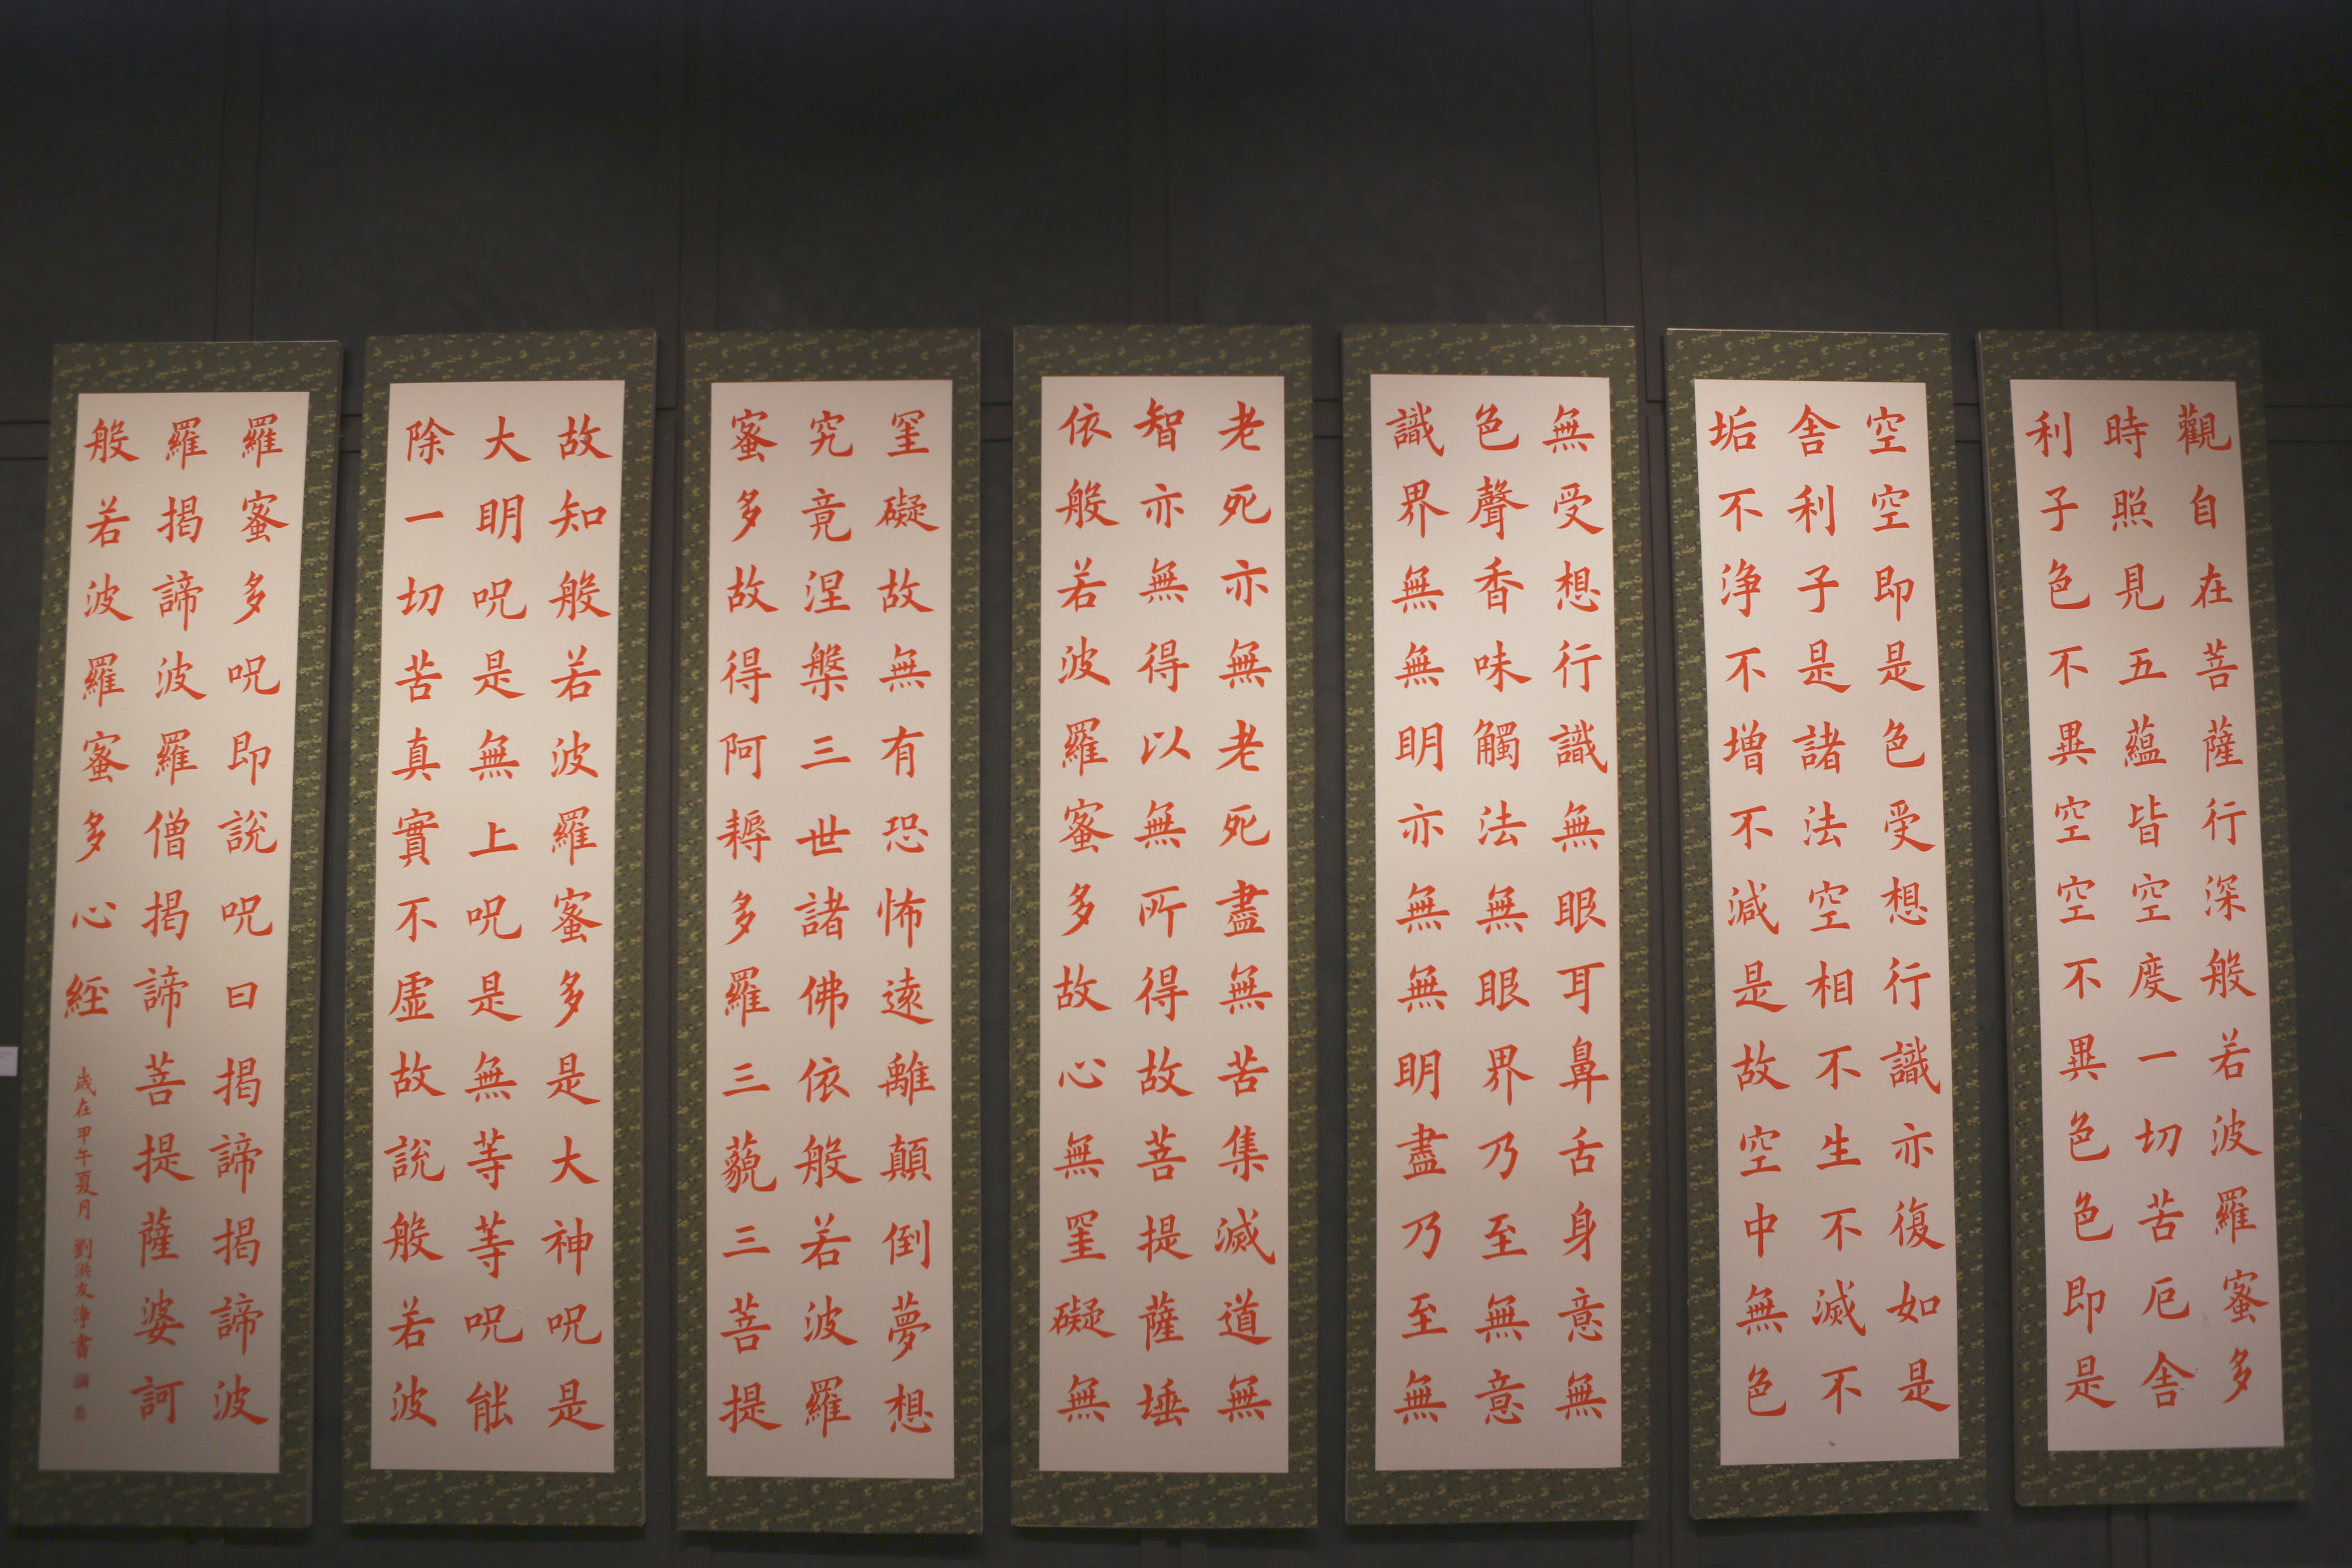 觀自在菩薩行深般若波羅蜜多
時照見五蘊皆空度一切苦厄舎
利子色不異空空不異色色即是
空空即是色受想行識亦復如是
舎利子是諸法空相不生不滅不
垢不淨不増不減是故空中無色
無受想行識無眼耳鼻舌身意無
色聲香味觸法無眼界乃至無意
識界無無明亦無無明盡乃至無
老死亦無老死盡無苦集滅道無
智亦無得以無所得故菩提薩埵
依般若波羅蜜多故心無罣礙無
罣礙故無有恐怖遠離顛倒夢想
究竟涅槃三世諸佛依般若波羅
蜜多故得阿耨多羅三藐三菩提
故知般若波羅蜜多是大神呪是
大明呪是無上呪是無等等呪能
除一切苦真實不虛故說般若波
羅蜜多呪即說呪曰揭諦揭諦波
羅揭諦波羅僧揭諦菩提薩婆訶
般若波羅蜜多心経
歲在甲午夏月 劉洪友淨書